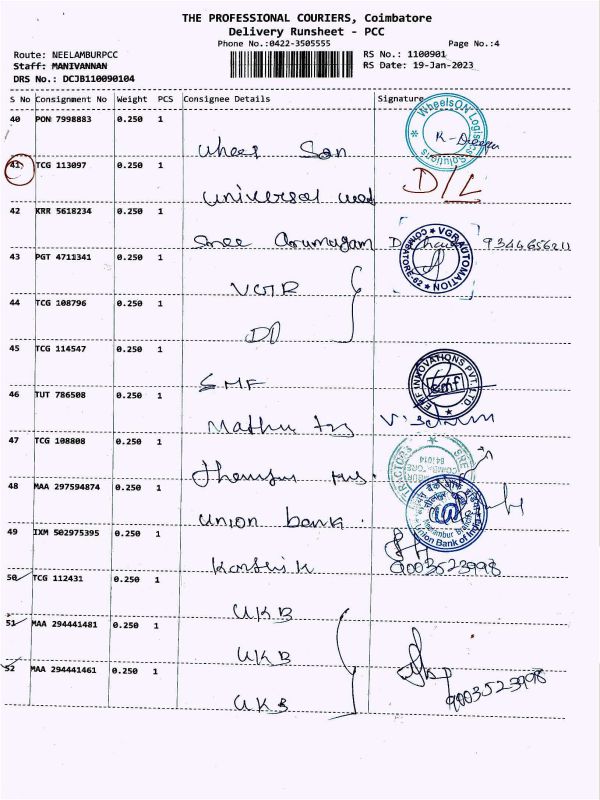 THE PROFESSIONAL COURIERS, Coimbatore
Delivery Runsheet - PCC
Phone No.:0422-3505555
Page No.:4
Route: NEELAMBURPCC
RS No.: 1100901
Staff: MANIVANNAN
RS Date: 19-Jan-2023
DRS No.: DCJB110090104
S No Consignment No Weight PCS Consignee Details Signature
40 PON 7998883 0.250 1
WheelsON Logistics Solutions
41 TCG 113097 0.250 1
D/L
universal
42 KRR 5618234 0.250 1
Sree Arumugam 9344656211
VGR AUTOMATION COIMBATORE-62
43 PGT 4711341 0.250 1
VGR
44 TCG 108796 0.250 1
45 TCG 114547 0.250 1
EMF INNOVATIONS PVT. LTD
emf
EMF
46 TUT 786508 0.250 1
Mathu
47 TCG 108808 0.250 1
SRE
641014
48 MAA 297594874 0.250 1
union bank.
Neelambur Branch
Union Bank of India
49 IXM 502975395 0.250 1
Karthik 9003523998
50 TCG 112431 0.250 1
UKB
51 MAA 294441481 0.250 1
UKB
52 MAA 294441461 0.250 1
UKB
9003523998